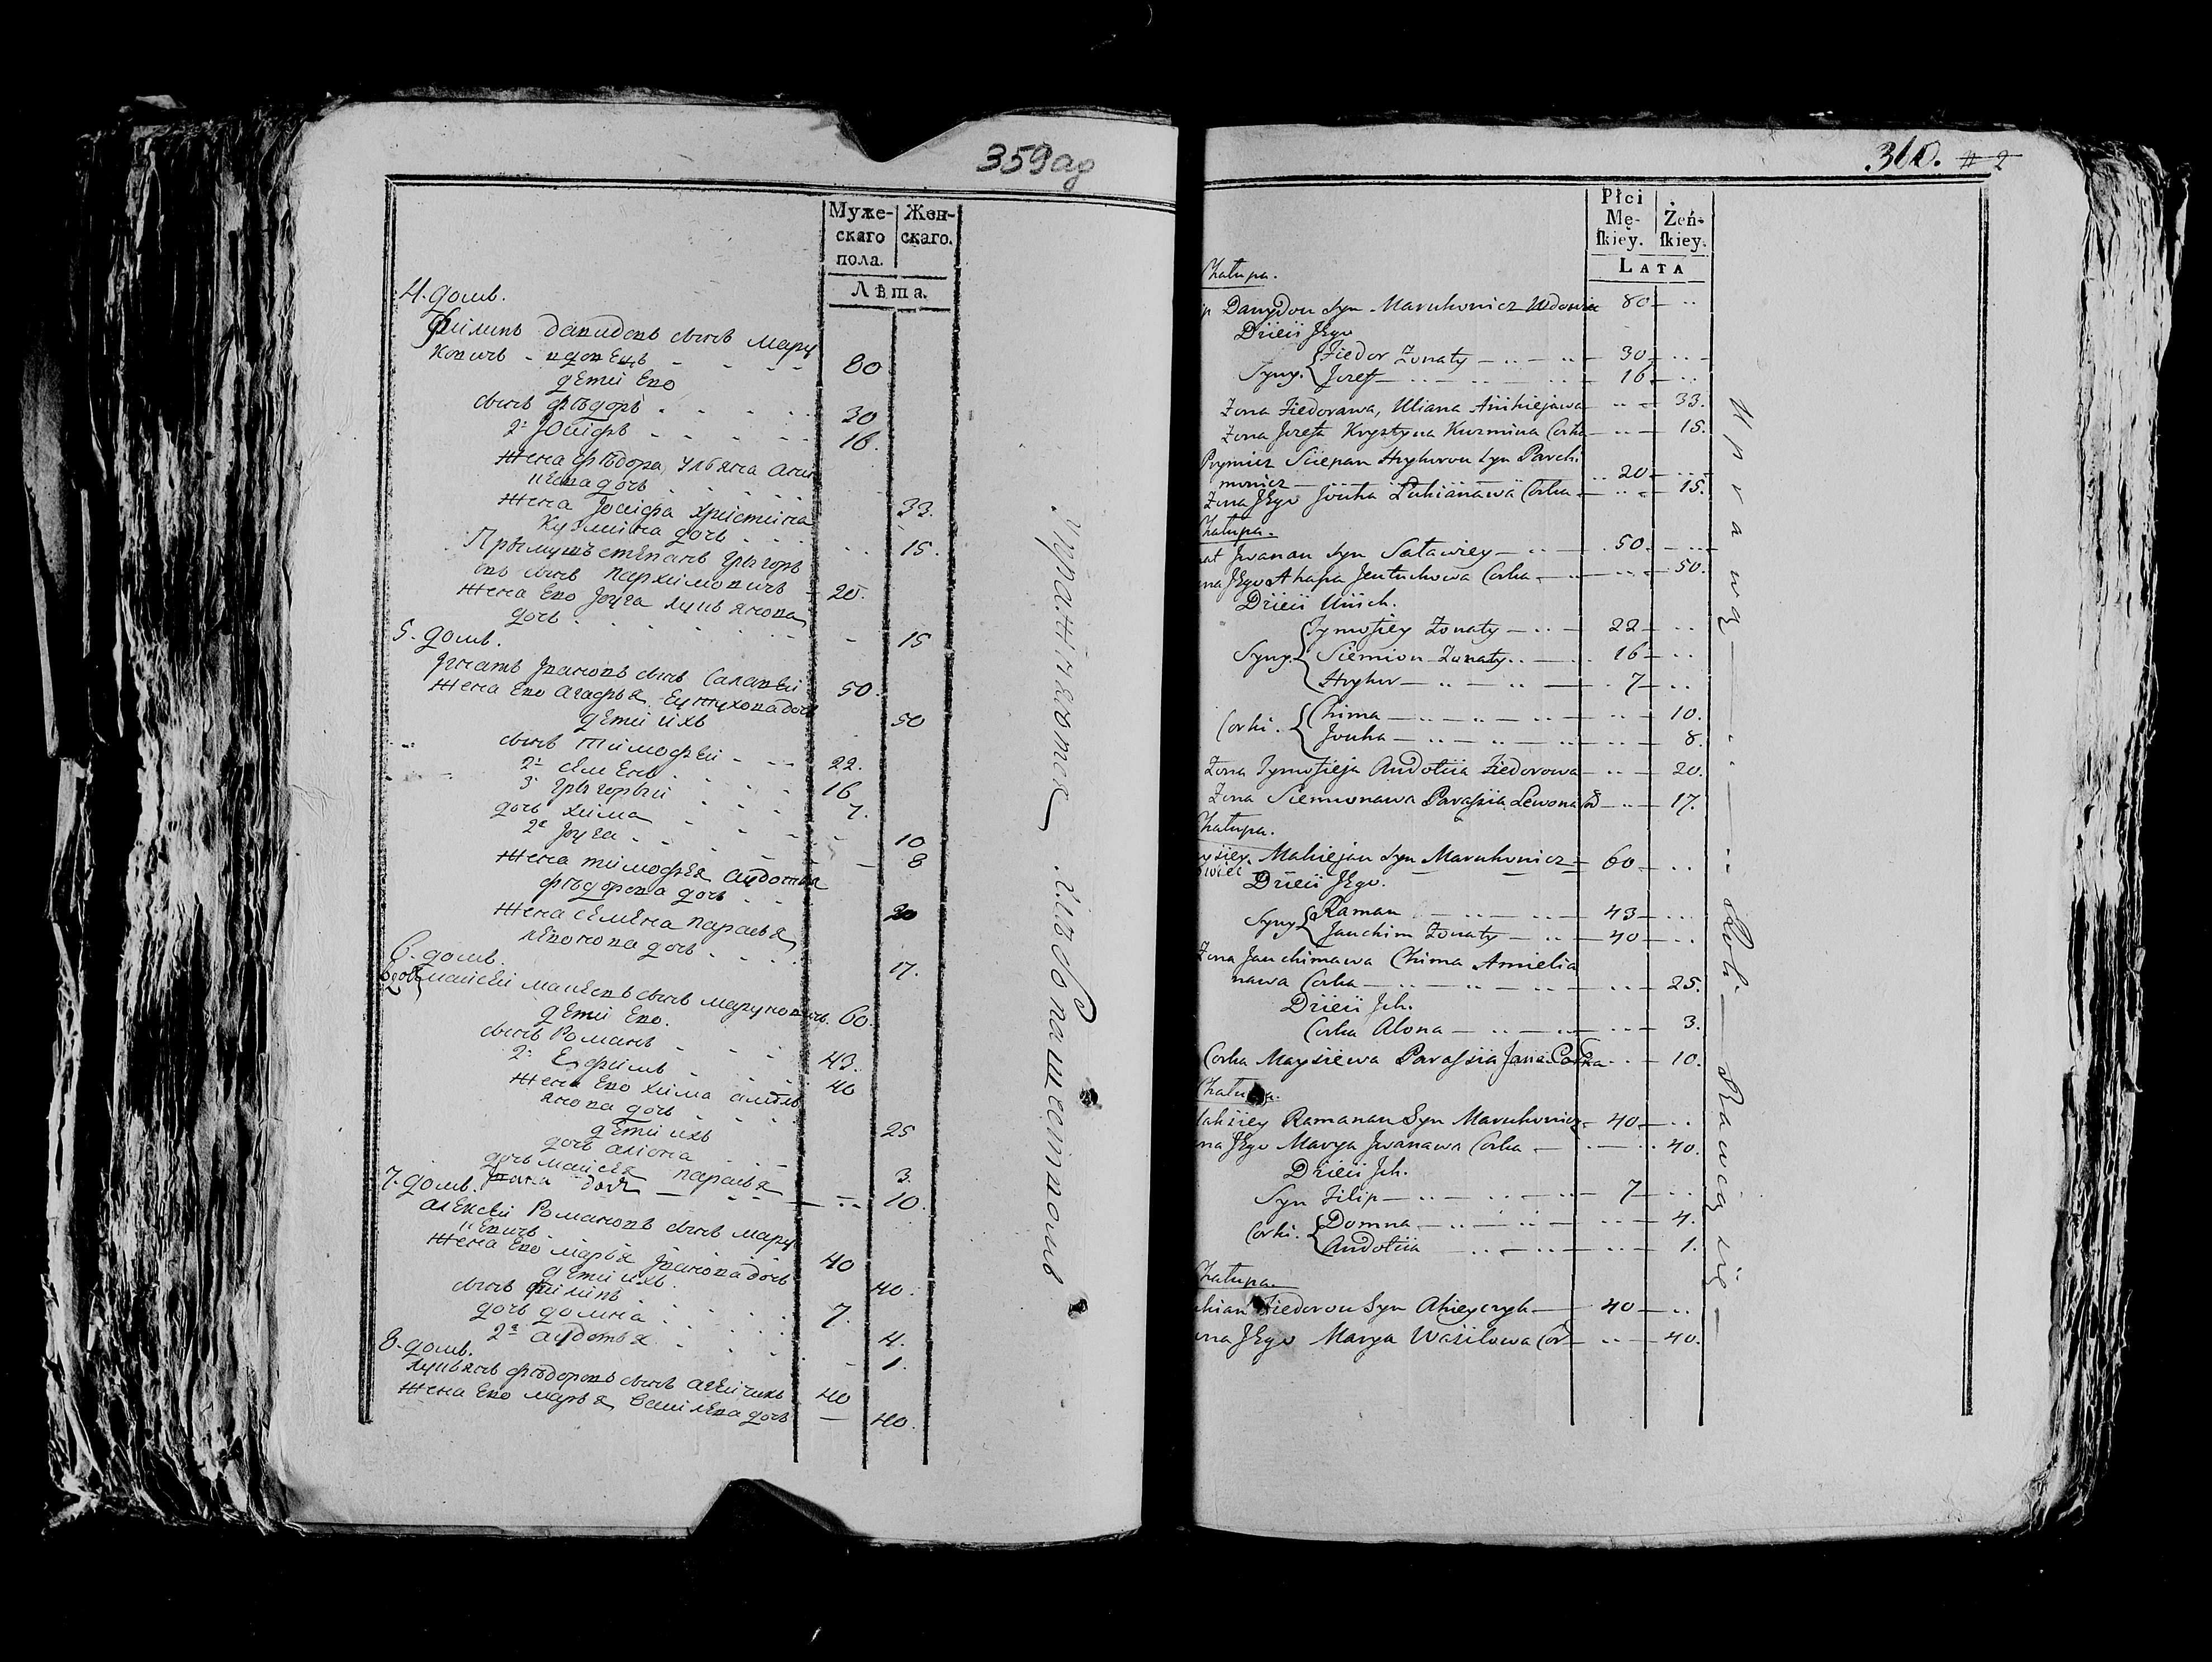 359ад
Муже-
скаго
пола.
Жен-
скаго.
Лѣта.
4. домъ.
Филипъ давыдовъ сынъ мару
ковичъ - вдовецъ 80
дети Ево
сынъ фѣдоръ 30
2й Іосифъ 16.
жена фѣдора, ульяна
дочь
33.
жена Іосифа христина
кузмина дочь 15.
Прымутъ степанъ грыгоръ
евъ сынъ пархимовичъ 20.
жена Ево Іоуга лукьянова
дочь 15
5. домъ.
Игнатъ Ивановъ сынъ салавеи 50.
жена Ево агафья Еутухова дочь 50
дети ихъ
сынъ тимофеи 22.
2й семенъ 16
3й грыгореи 7.
дочь хима 10
2я Іоуга 8
жена тимофея аудотья
фѣдорова дочь 20
жена семена парасья
левонова дочь 17.
6. домъ.
маисеи макеевъ сынъ маруковичъ. 60.
дети Ево.
сынъ Романъ 43.
2й Ефимъ 40
жена Ево хима амелья
янова дочь 25
дети ихъ
дочь алiона 3.
дочь маисея парасья 10.
7. домъ.
алексеи Романовъ сынъ мару
кевичъ 40
жена Ево марья Иванова дочь 40.
дети ихъ.
сынъ филипъ 7.
дочь домна 4.
2я аудотья 1.
8. домъ.
лукьянъ фѣдоровъ сынъ 40
жена Ево марья василева дочь 40.
Упражняются хлебопашествомъ
360. # 2
Płci
Mę-
skiey.
Żeń-
skiey.
LATA
Chałupa.
Dawydou Syn Marukowicz Wdowiec 80
Dzieci Jego
Syny. Fiedor Żonaty 30
Jozef 16
Żona Fiedorawa, Uliana Anikiejawa 33.
Żona Jozefa Krystyna Kuzmina Corka 15.
Prymicz Sciepan Hryhorou Syn Parchi
mowicz 20
Żona Jego Jouha Łukianawa Corka 15.
Chałupa.
Jwanau Syn Saławiey 50.
Jego Ahapa Jeutuchowa Corka 50.
Dzieci Uiich.
Syny. Tymofiey Żonaty 22
Siemion Żonaty 16
Hryhor 7
Corki. Chima 10.
Jouha 8.
Żona Tymofieja Audotiia Fiedorowa 20.
Żona Siemionawa Parasiia Lewona 17.
Chałupa.
Makiejau Syn Marukowicz 60
Dzieci Jego.
Syny Raman 43
Jauchim Żonaty 40
Żona Jauchimawa Chima Amielia
nawa Corka 25.
Dzieci Jch.
Corka Alona 3.
Corka Maysiewa Parasiia 10.
Chałupa.
Ramanau Syn Marukowicz 40
Jego Marya Jwanawa Corka 40.
Dzieci Jch.
Syn Filip 7
Corki. Domna 4.
Audotiia 1.
Chałupa.
Fiedorou Syn 40
Jego Marya Wasilowa Cor 40.
Uprawą Roli Bawią się